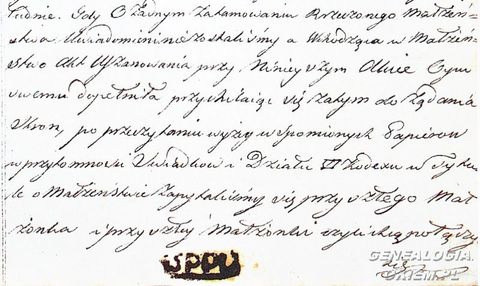 ludnie. Gdy o żadnym zatamowaniu Rzeczonego Małżeń-
stwa Uwiadomieni nie zostaliśmy a Wchodząca w Małżeń-
stwo Akt Uszanowania przy Niniejszym Akcie Oycu
swemu dopełniła przychilaiąc się zatym do Żądania
Stron, po przeczytaniu wyżey wspomnionych Papierow
w przytomności Swiadkow i Działu VI Kodexu w Tytu-
le o Małżeństwie zapytaliśmy się przyszłego Mał-
żonka i przyszłey Małżonki czyli chcą połączyć
UPPU
GENEALOGIA.
OKIEM.PL